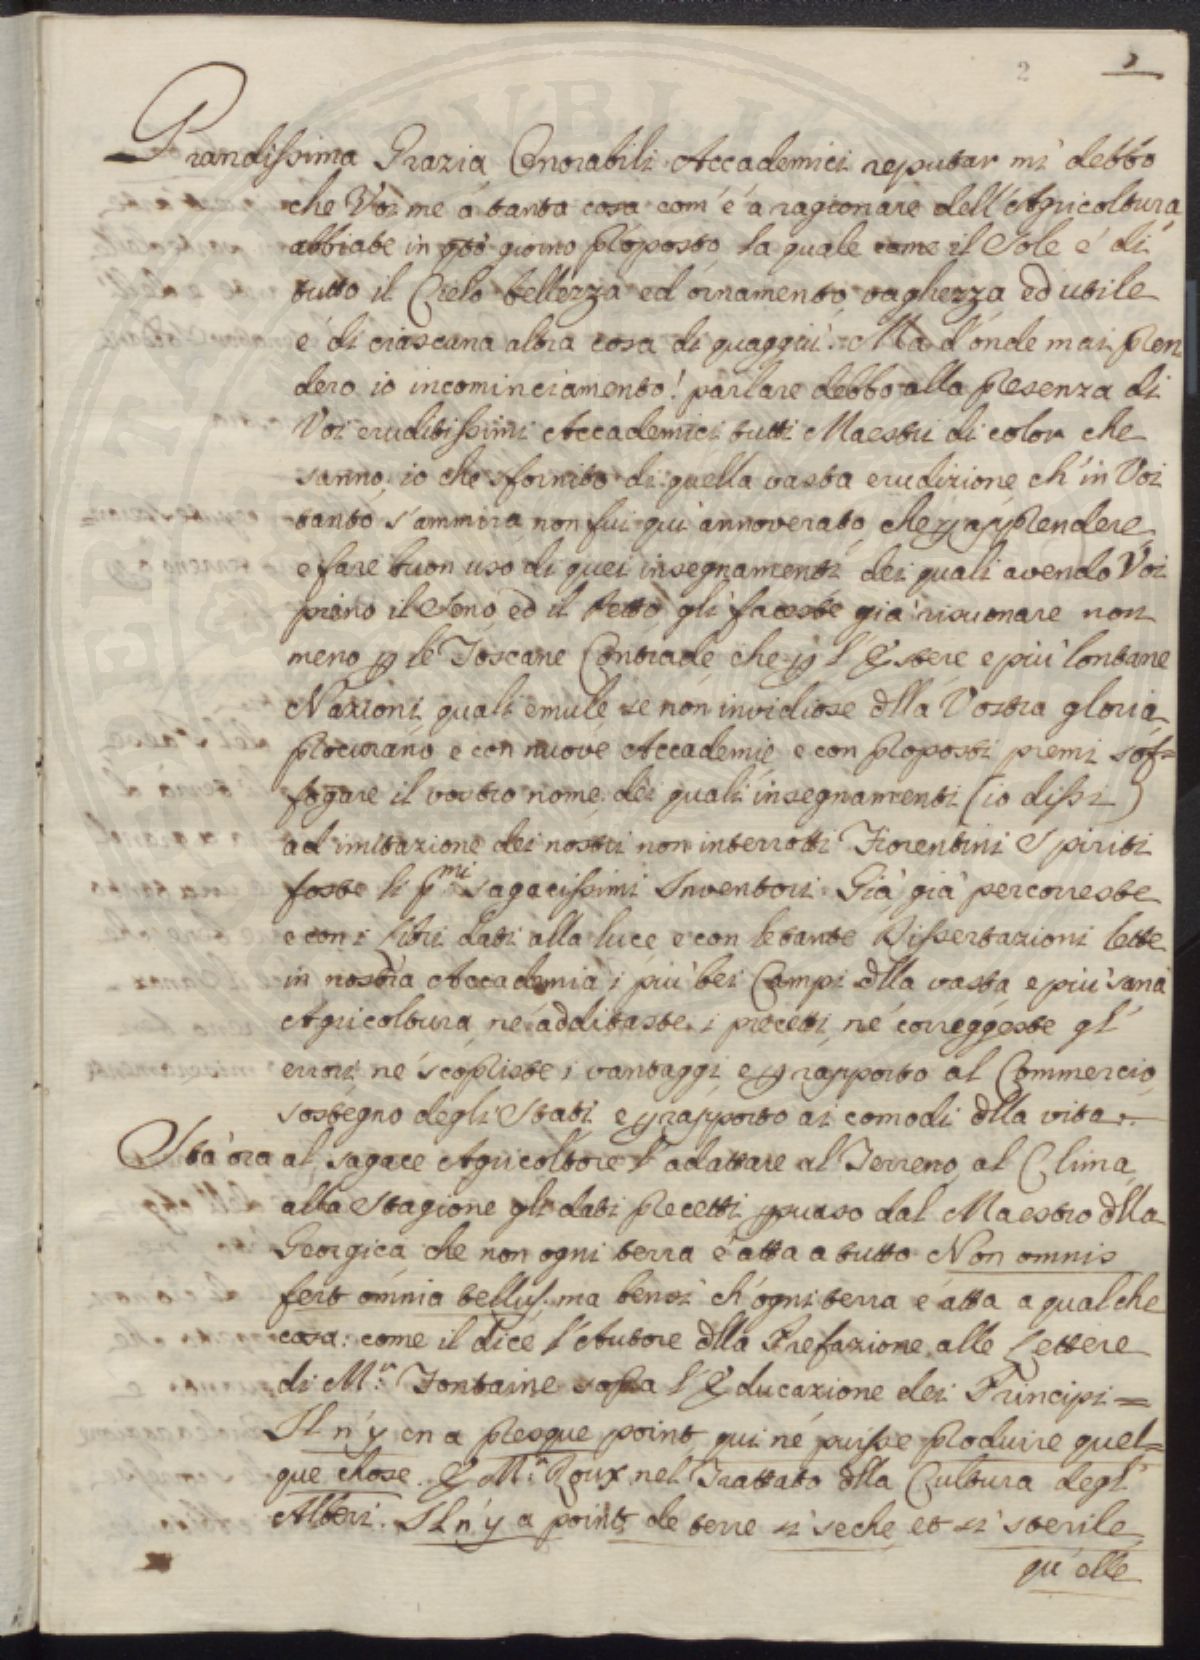 2
2
Grandissima Grazia Onorabili Accademici reputar mi debbo
che Voi me á tanta cosa com'é á ragionare dell'Agricoltura
abbiate in qto giorno proposto la quale come il Sole é di
tutto il Cielo bellezza ed ornamento vaghezza ed utile
é di ciascuna altra cosa di quaggiù. Ma d'onde mai pren
dero io incominciamento! parlare debbo alla presenza di
Voi eruditissimi Accademici tutti Maestri di color che
sanno: io che sfornito di quella vasta erudizione ch'in Voi
tanto s'ammira non fui qui annoverato che p apprendere
e fare buon uso di quei insegnamenti dei quali avendo Voi
pieno il Seno ed il Petto gli faceste già risuonare non
meno p le Toscane Contrade che p l'Estere e più lontane
Nazioni quali emule se non invidiose dlla Vostra gloria
procurano e con nuove Accademie e con proposti premi sof=
fogare il vostro nome. dei quali insegnamenti (io dissi)
ad imitazione dei nostri non interrotti Fiorentini Spiriti
foste li pmi sagacissimi Inventori. Già già percorreste
e con i Libri dati alla luce e con le tante Dissertazioni lette
in nostra Accademia i più bei Campi dlla vasta e più sana
Agricoltura né additaste i precetti, né correggeste gl'
errori né scopriste i vantaggi e p rapporto al Commercio
sostegno degli Stati e p rapporto ai comodi dlla vita.
Stà ora al sagace Agricoltore l'adattare al Terreno al Clima
alla Stagione gli dati Precetti psuaso dal Maestro dlla
Georgica che non ogni terra é atta a tutto Non omnis
fert omnia tellus. ma bensi ch'ogni terra é atta a qualche
cosa: come il dice l'Autore dlla Prefazione alle Lettere
di Mr. Fontaine sopra l'Educazione dei Principi =
Il n'y en a presque point qui né puisse produire quel=
que chose. E Mr. Roux nel Trattato dlla Cultura degl'
Alberi. Il n'y a point de terre si seche et si sterile
qu'elle